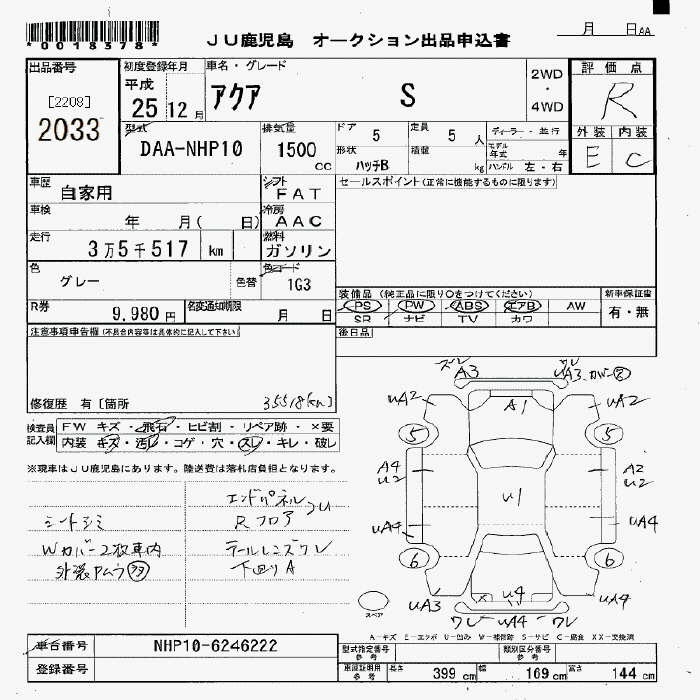 *0018378*
JU鹿児島 オークション出品申込書
月 日AA
出品番号 初度登録年月 車名・グレード 2WD ・ 4WD 評価点
[2208] 2033 平成 25 12月 アクア S R
型式 排気量 ドア 5 定員 5人 ディーラー・並行 外装 内装
DAA-NHP10 1500cc 形状 ハッチB 積載 kg モデル年式 年 ハンドル 左・右 E C
車歴 自家用 シフト FAT セールスポイント(正常に機能するものに限ります)
車検 年 月( 日) 冷房 AAC
走行 3万5千517 km 燃料 ガソリン
色 グレー 色替 色コード 1G3
装備品(純正品に限り○をつけてください) 新車保証書
R券 9,980円 名変通知期限 月 日 PS PW ABS エアB AW 有・無
SR ナビ TV カワ
注意事項申告欄(不具合内容等は具体的に記入して下さい) 後日品
修復歴 有〔箇所 35518km〕
検査員記入欄 FW キズ・飛石・ヒビ割・リペア跡・×要
内装 キズ・汚レ・コゲ・穴・スレ・キレ・破レ
※現車はJU鹿児島にあります。陸送費は落札店負担となります。
エンドパネル
シートシミ Rフロア
Wカバー2枚車内 テールレンズワレ
下回りA
A3 UA3
UA2 A1 UA2
5 5
A4 U2 U1 A2 U2
UA4 UA4
6 6
スペア UA3 X U4 UA4
ワレ UA4 ワレ
A-キズ E-エクボ U-凹み W-補修跡 S-サビ C-腐食 XX-交換済
車台番号 NHP10-6246222 型式指定番号 参考 類別区分番号 参考
登録番号 車庫証明用 参考 長さ 399cm 幅 169cm 高さ 144cm